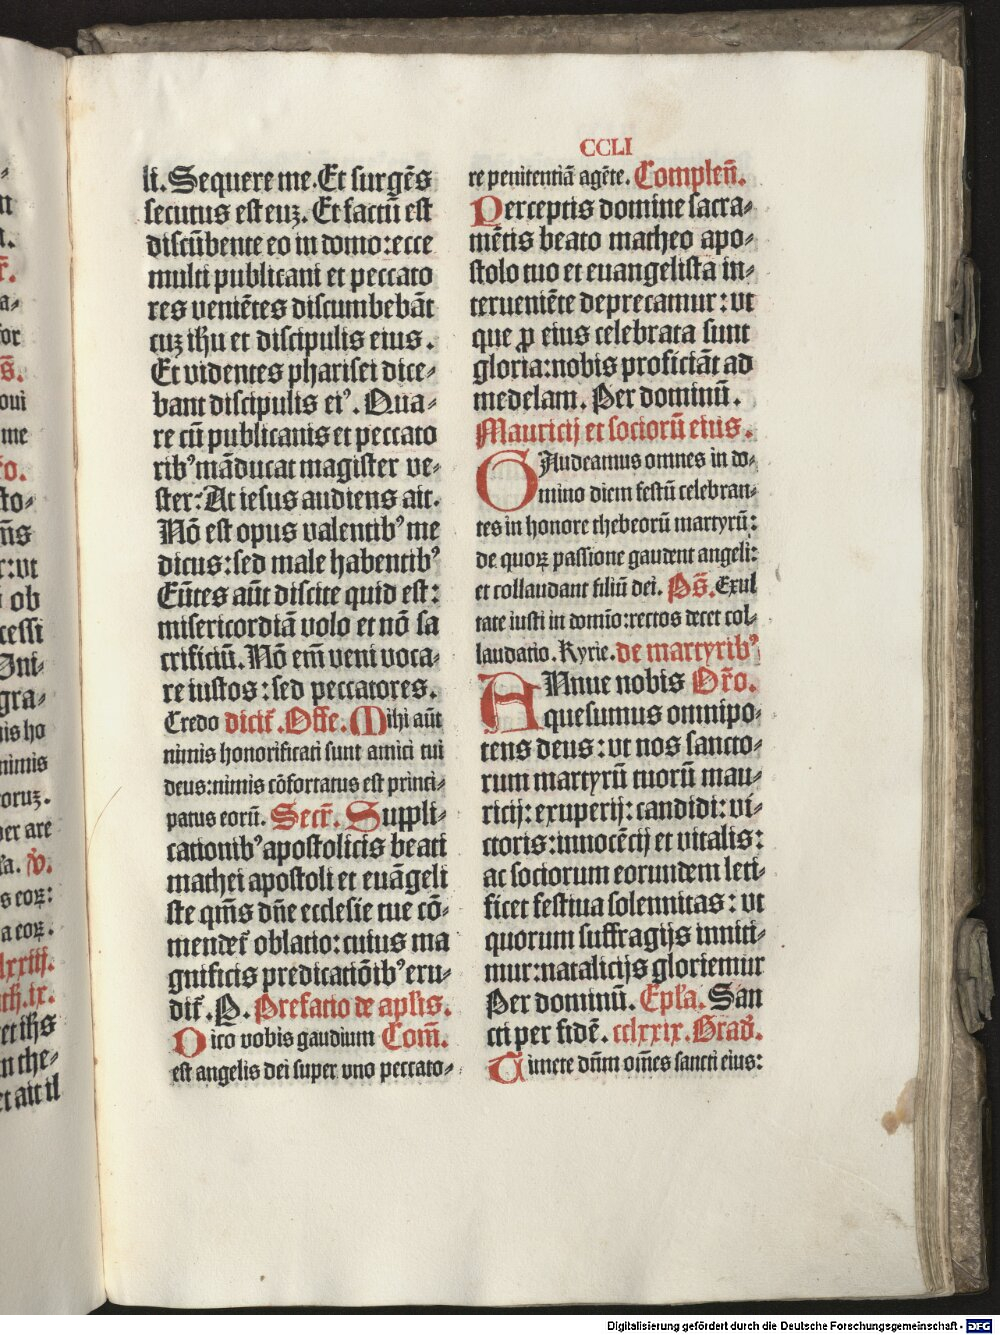 CCLI
li. Sequere me. Et surgēs
secutus est euꝫ. Et factū est
discūbente eo in domo: ecce
multi publicani et peccato
res veniētes discumbebāt
cuꝫ ihu et discipulis eius.
Et videntes pharisei dice⸗
bant discipulis eiꝰ. Qua⸗
re cū publicanis et peccato
ribꝰ māducat magister ve⸗
ster: At iesus audiens ait.
Nō est opus valentibꝰ me
dicus: sed male habentibꝰ
Eūtes aūt discite quid est:
misericordiā volo et nō sa
crificiū. Nō em̄ veni voca⸗
re iustos: sed peccatores.
Credo dicit̄. Offe. Mihi aūt
nimis honorificati sunt amici tui
deus: nimis cōfortatus est princi⸗
patus eorū. Secr̄. Suppli⸗
cationibꝰ apostolicis beati
mathei apostoli et euāgeli
ste qm̄s dn̄e ecclesie tue cō⸗
mendet̄ oblatio: cuius ma
gnificis predicatiōibꝰ eru⸗
dit̄. P. Prefatio de apl̄is.
Dico vobis gaudium Com̄.
est angelis dei super vno peccato⸗
re penitentiā agēte. Complen̄.
Perceptis domine sacra⸗
mētis beato matheo apo⸗
stolo tuo et euangelista in⸗
terueniēte deprecamur: vt
que ꝓ eius celebrata sunt
gloria: nobis proficiāt ad
medelam. Per dominū.
Mauricij et sociorū eius.
GAudeamus omnes in do⸗
mino diem festū celebran⸗
tes in honore thebeorū martyrū:
de quoꝝ passione gaudent angeli:
et collaudant filiū dei. Ps̄. Exul
tate iusti in domīo: rectos decet col⸗
laudatio. Kyrie. de martyribꝰ
ANnue nobis Or̄o.
quesumus omnipo⸗
tens deus: vt nos sancto⸗
rum martyrū tuorū mau⸗
ricij: exuperij: candidi: vi⸗
ctoris: innocēcij et vitalis:
ac sociorum eorundem leti⸗
ficet festiua solennitas: vt
quorum suffragijs inniti⸗
mur: natalicijs gloriemur
Per dominū. Epl̄a. San
cti per fidē. cclxxix. Grad̄.
Timete dn̄m om̄es sancti eius:
Digitalisierung gefördert durch die Deutsche Forschungsgemeinschaft - DFG